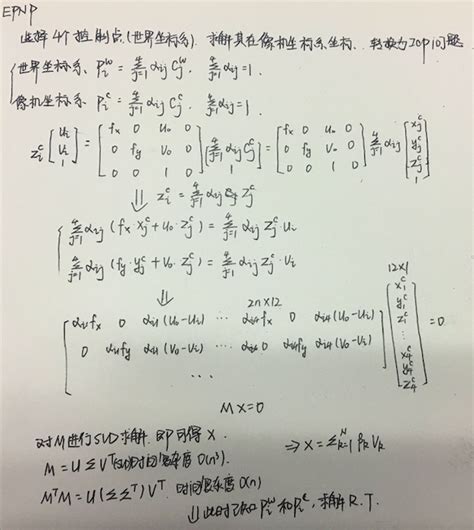 EPNP
选择4个控制点(世界坐标系). 求解其在像机坐标系坐标. 转换为3D问题
世界坐标系. P_i^w = Σ_{j=1}^4 α_ij C_j^w, Σ_{j=1}^4 α_ij = 1.
像机坐标系 P_i^c = Σ_{j=1}^4 α_ij C_j^c. Σ_{j=1}^4 α_ij = 1.
z_i^c [u_i v_i 1] = [fx 0 u_0 0; 0 fy v_0 0; 0 0 1 0] [Σ_{j=1}^4 α_ij C_j^c; 1] = [fx 0 u_0 0; 0 fy v_0 0; 0 0 1 0] Σ_{j=1}^4 α_ij [x_j^c; y_j^c; z_j^c; 1]
⇓ z_i^c = Σ_{j=1}^4 α_ij z_j^c
Σ_{j=1}^4 α_ij (fx x_j^c + u_0 · z_j^c) = Σ_{j=1}^4 α_ij z_j^c · u_i
Σ_{j=1}^4 α_ij (fy · y_j^c + v_0 · z_j^c) = Σ_{j=1}^4 α_ij z_j^c · v_i
⇓ 2n×12 12×1
[α_i1 fx 0 α_i1 (u_0 - u_i) ... α_i4 fx 0 α_i4 (u_0 - u_i)
0 α_i1 fy α_i1 (v_0 - v_i) ... 0 α_i4 fy α_i4 (v_0 - v_i)
...] [x_1^c y_1^c z_1^c ⋮ x_4^c y_4^c z_4^c] = 0
MX=0
对M进行SVD求解. 即可得X. ⇒ X = Σ_{k=1}^N β_k V_k
M = U Σ V^T 时间复杂度 O(n³).
M^T M = U (Σ Σ^T) V^T. 时间复杂度 O(n)
⇓ 此时已知 P_i^w 和 P_i^c, 求解 R.T.